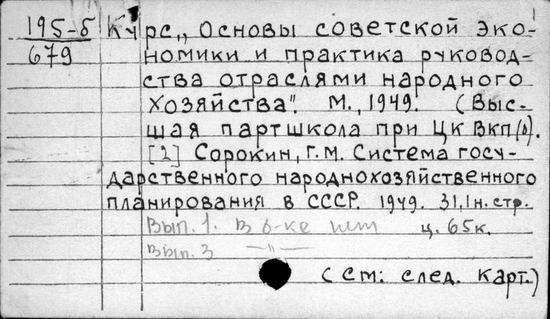 195-б
679
Курс „Основы советской эко-
номики и практика руковод-
ства отраслями народного
хозяйства". М., 1949. (Выс-
шая партшкола при ЦК ВКП(б).
[2] Сорокин, Г.М. Система госу-
дарственного народнохозяйственного
планирования в СССР. 1949. 31,1н. стр.
Вып. 1. в б-ке нет ц. 65к.
Вып. 3 —"—
(См: след. карт.)